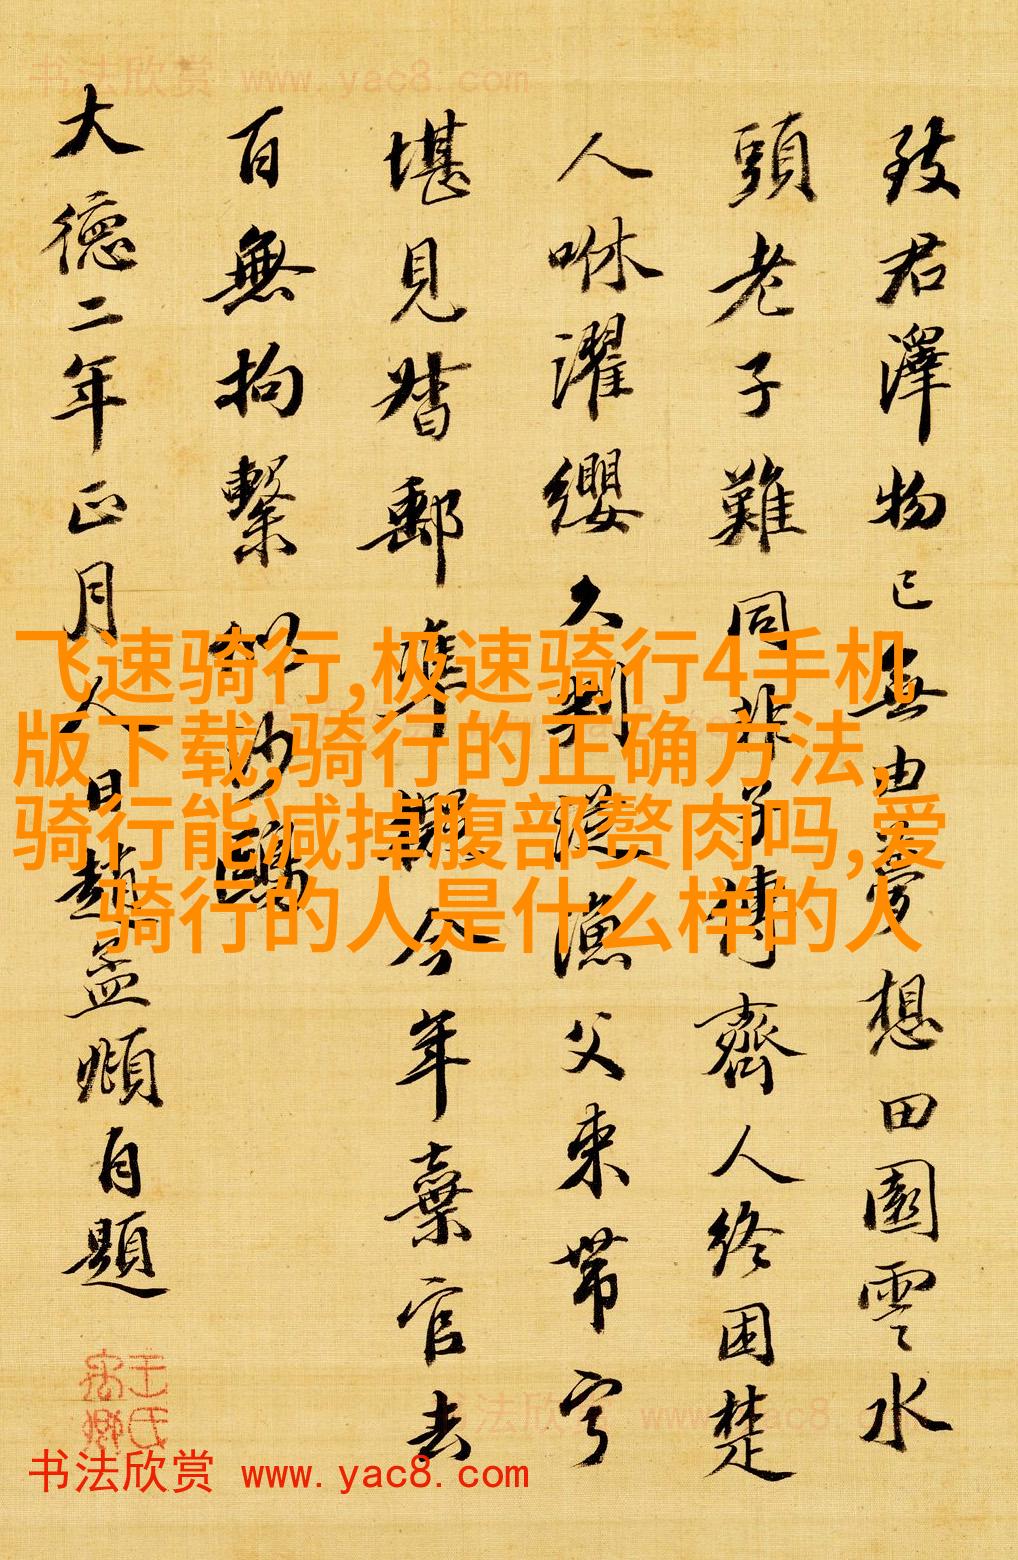 书法欣赏 www.yac8.com
致君澤物已無由夢想田園雲水
頭老子難同非子傳齊人終困楚
人咻濯纓久判從漁父束帶寧
堪見督郵準擬今年棄官去
百無拘繫似沙鷗
大德二年正月人日趙孟頫自題
飞速骑行,极速骑行4手机
版下载,骑行的正确方法,
骑行能减掉腹部赘肉吗,爱
骑行的人是什么样的人
书法欣赏 www.yac8.com
书法欣赏 www.yac8.com